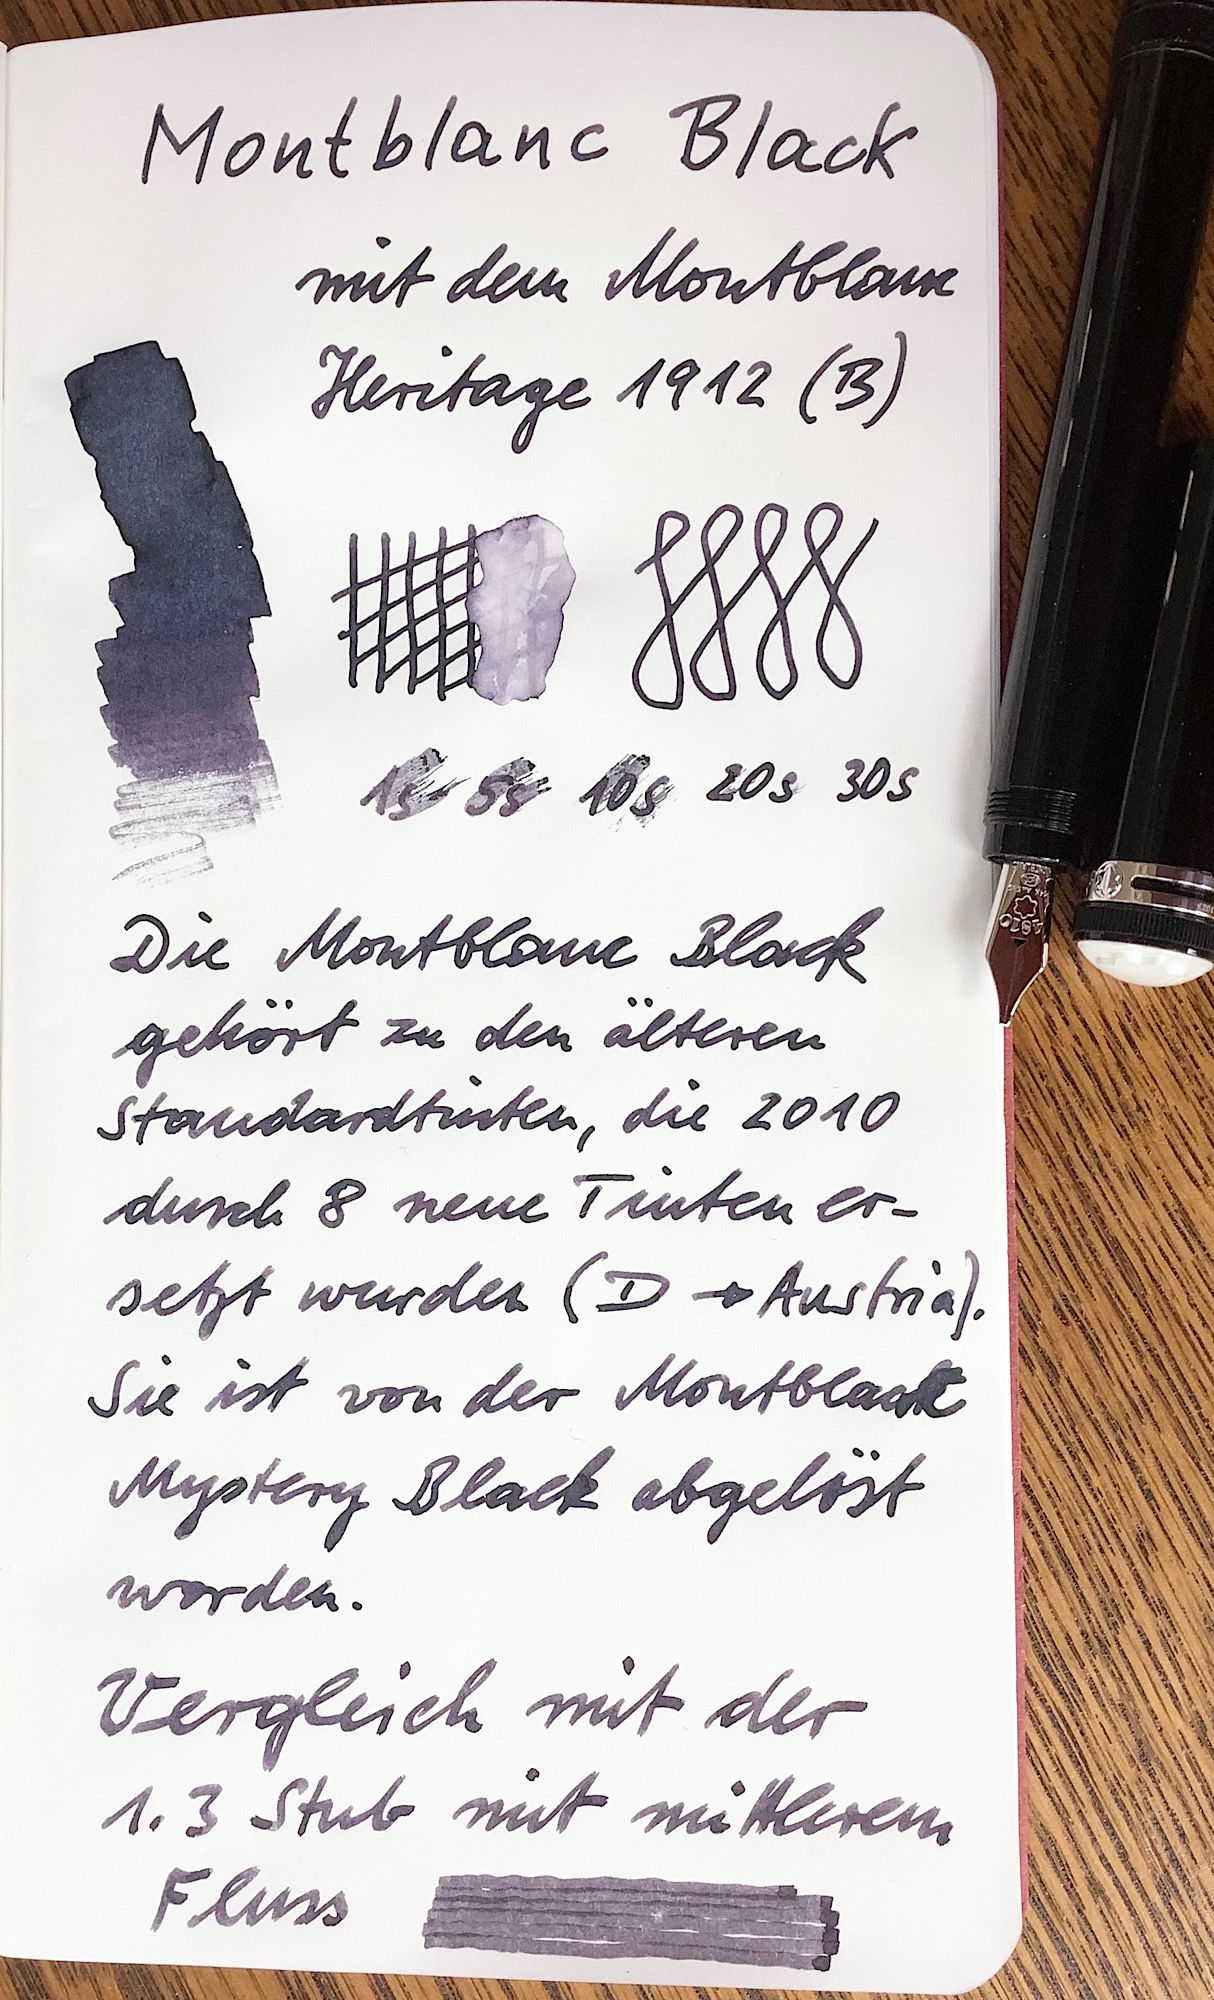 Montblanc Black
mit dem Montblanc
Heritage 1912 (B)
1s 5s 10s 20s 30s
Die Montblanc Black
gehört zu den älteren
Standardtinten, die 2010
durch 8 neue Tinten er-
setzt wurden (D → Austria).
Sie ist von der Montblack
Mystery Black abgelöst
worden.
Vergleich mit der
1.3 Stub mit mittlerem
Fluss
4810